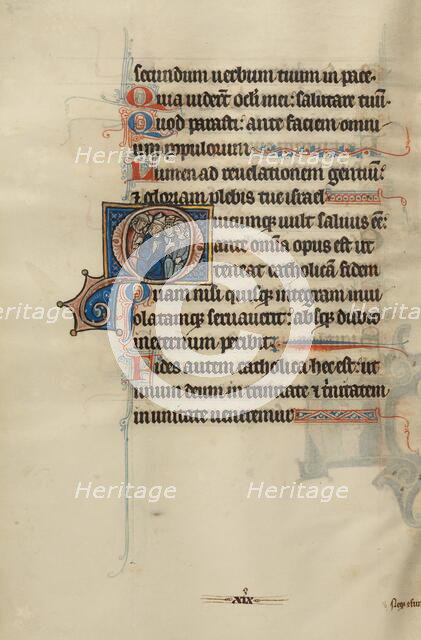 secundum uerbum tuum in pace.
Quia uiderũt oculi mei: salutare tuũ.
Quod parasti: ante faciem omni
um populorum
Lumen ad reuelationem gentiũ:
& gloriam plebis tue israel
Quicumque uult saluus eẽ:
ante om̃ia opus est ut
teneat catholicã fidem
Quam nisi quisq; integram inui
olatamq; seruauerit: absq; dubio
ineternum peribit:
Fides autem catholica hec est: ut
unum deum in trinitate & t'nitatem
in unitate ueneremur
XIX
Heritage
Heritage
Heritage
Heritage
Heritage
Heritage
Heritage
Heritage